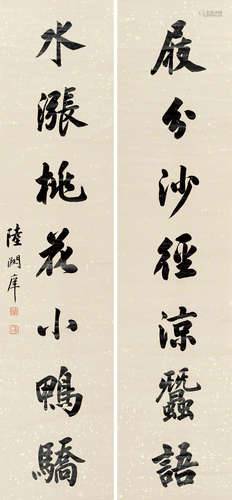 屐分沙徑涼語
水漲桃花小鴨驕
陸潤庠